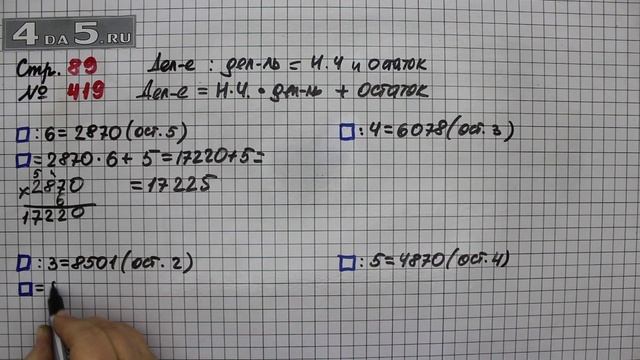 4 DA 5.RU
Стр. 89 Дел-е : дел-ль = Н.Ч и остаток
№ 419 Дел-е = Н.Ч. · дел-ль + остаток
□ : 6 = 2870 (ост. 5) □ : 4 = 6078 (ост. 3)
□ = 2870 · 6 + 5 = 17220 + 5 =
5 4
× 2870 = 17225
6
17220
□ : 3 = 8501 (ост. 2) □ : 5 = 4870 (ост. 4)
□ =